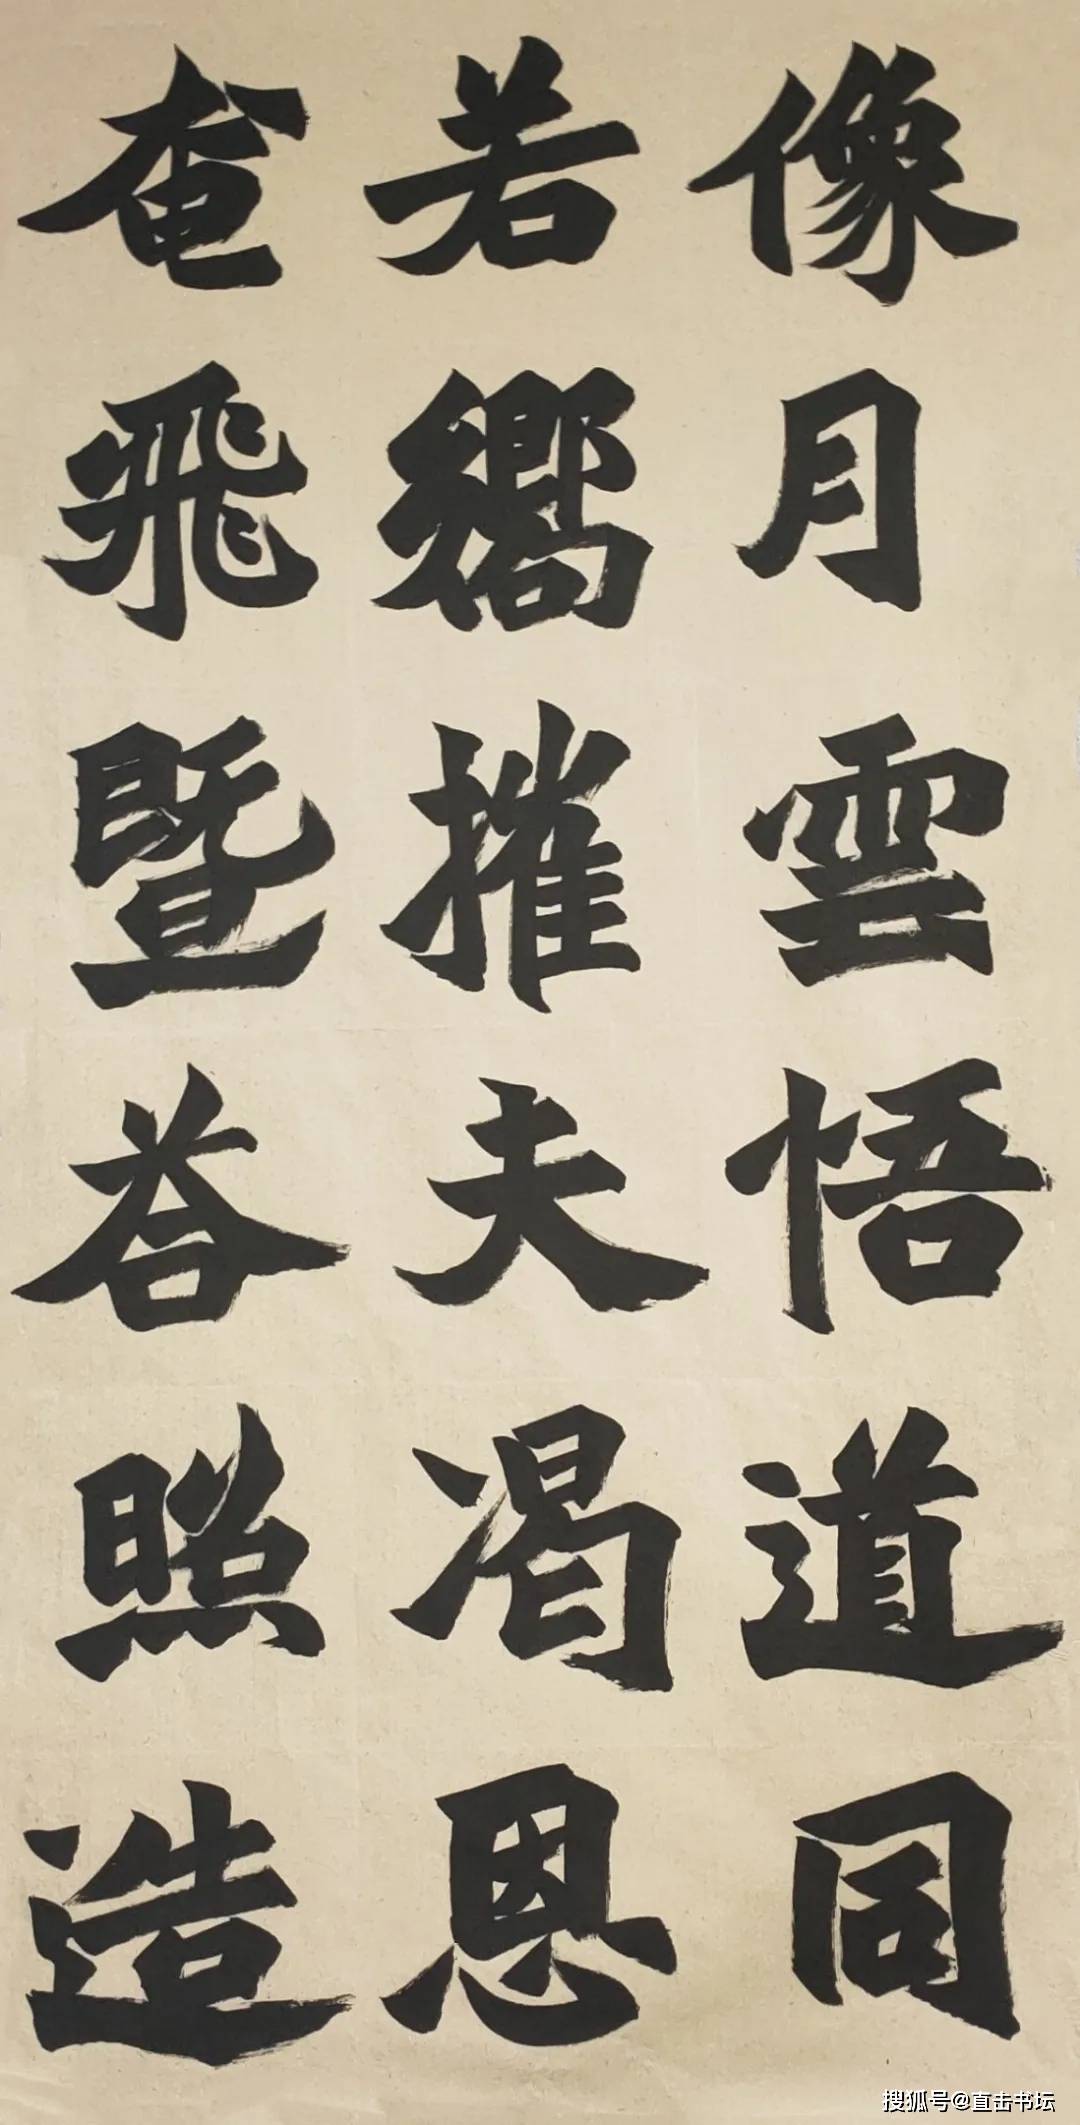 像月雲悟道同
若嚮摧夫渴恩
奄飛暨荅照造
搜狐号@直击书坛